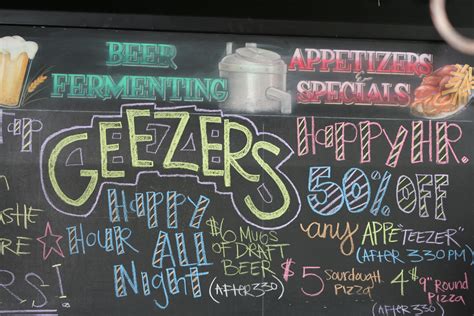 BEER
FERMENTING
APPETIZERS
& SPECIALS
GEEZERS
Happy
Hour All
Night
$6 MUGS
OF DRAFT
BEER
(AFTER 330)
HAPPY HR.
50% OFF
any APPE"TEEZER"
(AFTER 330 PM)
$5 Sourdough
Pizza
4$ 9" Round
Pizza
(AFTER 330)